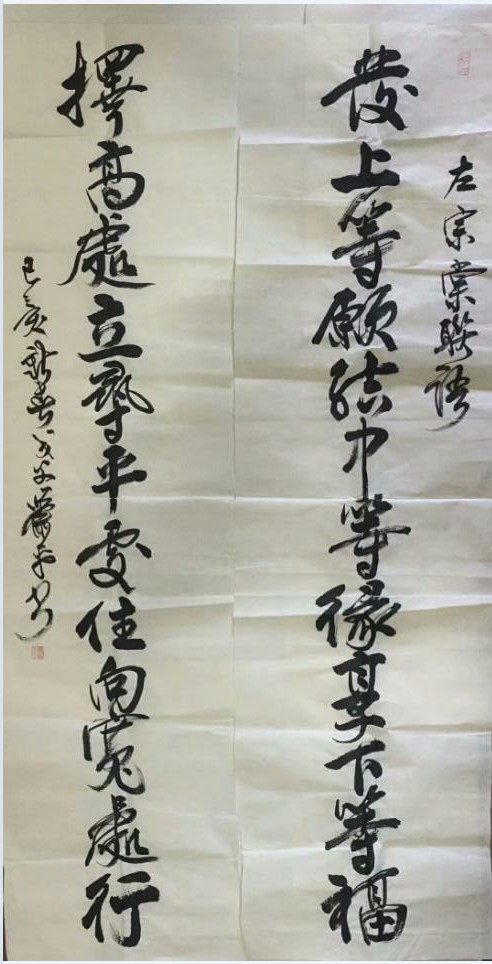 左宗棠聯語
發上等願結中等緣享下等福
擇高處立尋平處住向寬處行
己亥新春